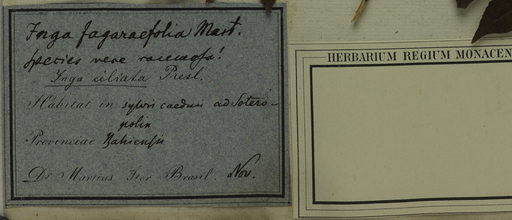 Inga fagaraefolia Mart.
species vere racemosa!
Inga ciliata Presl.
Habitat in sylvis caeduis ad Sotero-
polin
Provinciae Bahiensis
Dr. Martius Iter Brasil. Nov.
HERBARIUM REGIUM MONACEN